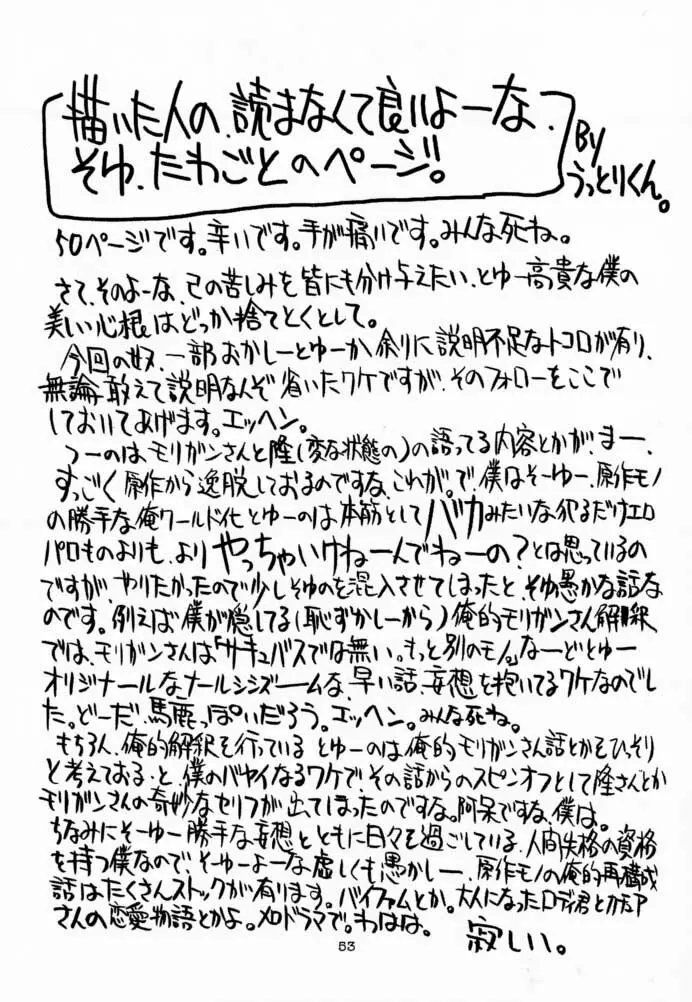 描いた人の、読まなくて良いよーな、
そゆ、たわごとのページ!。
By
うっとりくん。
50ページです。辛いです。手が痛いです。みんな死ね。
さて、そのよーな、己の苦しみを皆にも分け与えたい、とゆー高貴な僕の
美しい心根はどっか捨てとくとして。
今回の奴、一部おかしーとゆーか、余りに説明不足なトコロが有り、
無論、敢えて説明なんぞ省いたワケですが、そのフォローをここで
しておいてあげます。エッヘン。
つーのは、モリガンさんと隆(変な状態の)の語ってる内容とかが、まー、
すっごく原作から逸脱しておるのですな、これが。で、僕はそーゆー、原作モノ
の勝手な俺ワールド化とゆーのは本筋としてバカみたいな犯るだけエロ
パロものよりも、よりやっちゃいけねーんでねーの?とは思っているの
ですが、やりたかったので少しそゆのを混入させてしまったと、そゆ愚かな話な
のです。例えば僕が隠してる(恥ずかしーから)俺的モリガンさん解釈
では、モリガンさんは「サキュバスでは無い。もっと別のモノ。」なーどとゆー
オリジナールなナールシシズームな、早い話、妄想を抱いてるワケなのでし
た。どーだ、馬鹿っぽいだろう。エッヘン。みんな死ね。
もちろん、俺的解釈を行っているとゆーのは俺的モリガンさん話とかをひっそり
と考えておる、と、僕のバヤイなるワケで、その話からのスピンオフとして隆さんとか
モリガンさんの奇妙なセリフが出てしまったのですな。阿呆ですな、僕は。
ちなみにそーゆー勝手な妄想とともに日々を過ごしている、人間失格の資格
を持つ僕なので、そーゆーよーな虚しくも愚かしー、原作モノの俺的再構成
話はたくさんストックが有ります。バイファムとか。大人になったロディ君とカチュア
さんの恋愛物語とかよ。メロドラマで。わはは。
寂しい。
53